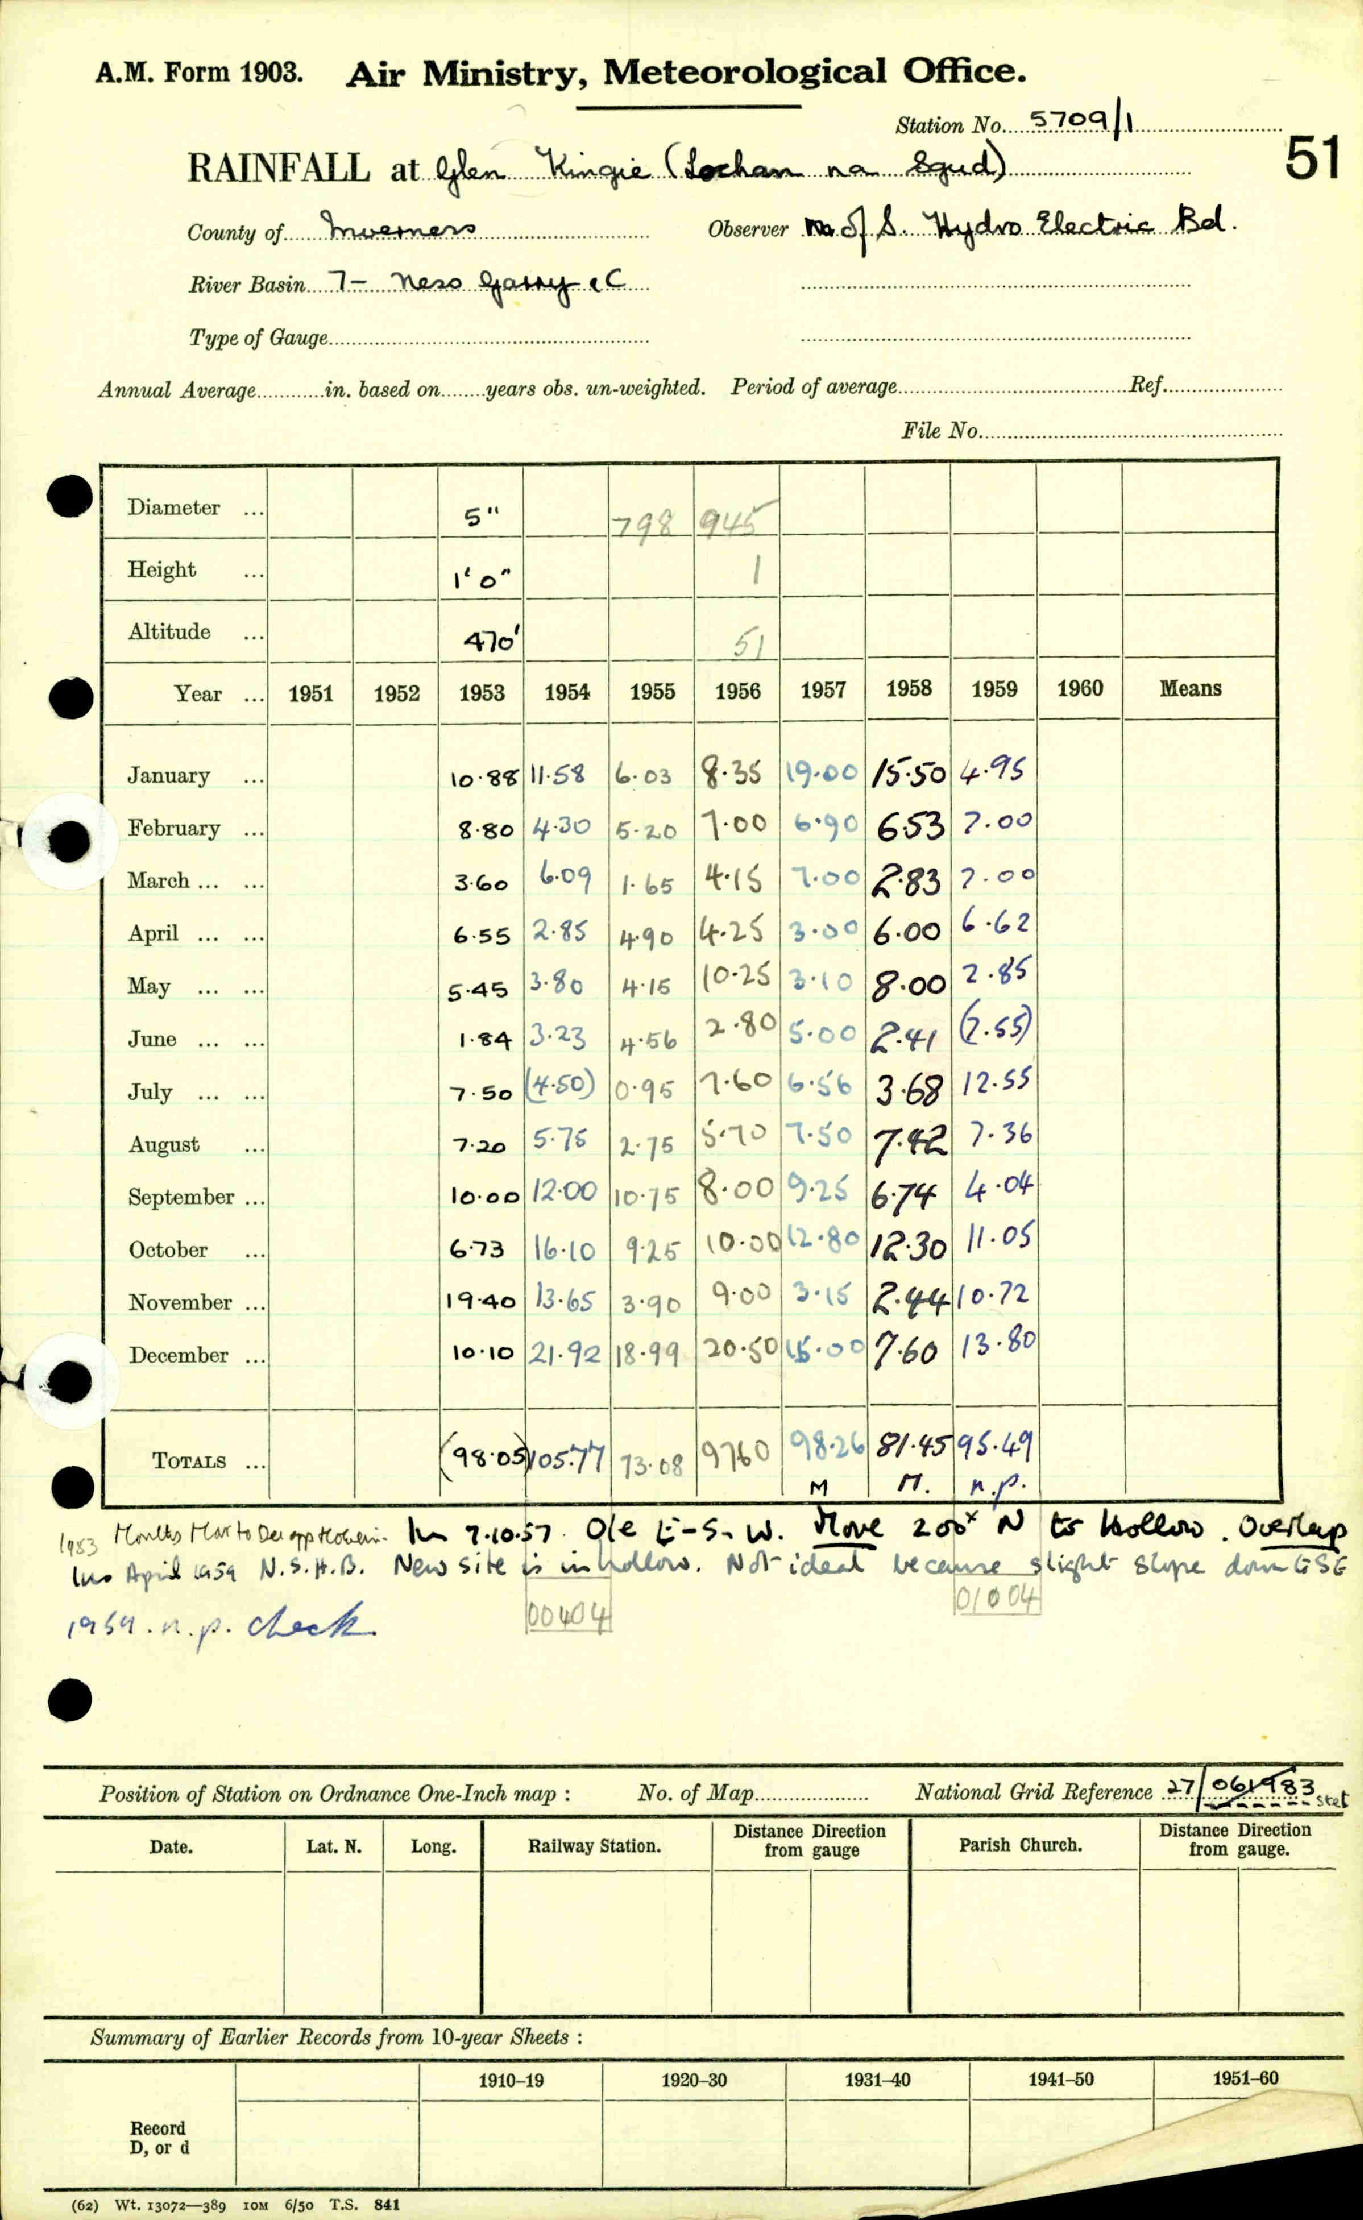 A.M. Form 1903. Air Ministry, Meteorological Office.
Station No. 5709/1
51
RAINFALL at Glen Kingie (Lochan na Sgud)
County of Inverness Observer N. of S. Hydro Electric Bd.
River Basin 7- Ness Garry & C
Type of Gauge
Annual Average in. based on years obs. un-weighted. Period of average Ref.
File No.
Diameter ... 5" 798 945
Height ... 1' 0" 1
Altitude ... 470' 51
Year ... 1951 1952 1953 1954 1955 1956 1957 1958 1959 1960 Means
January ... 10.88 11.58 6.03 8.35 19.00 15.50 4.95
February ... 8.80 4.30 5.20 7.00 6.90 6.53 7.00
March ... ... 3.60 6.09 1.65 4.15 7.00 2.83 7.00
April ... ... 6.55 2.85 4.90 4.25 3.00 6.00 6.62
May ... ... 5.45 3.80 4.15 10.25 3.10 8.00 2.85
June ... ... 1.84 3.23 4.56 2.80 5.00 2.41 (7.55)
July ... ... 7.50 (4.50) 0.95 7.60 6.56 3.68 12.55
August ... 7.20 5.75 2.75 5.70 7.50 7.42 7.36
September ... 10.00 12.00 10.75 8.00 9.25 6.74 4.04
October ... 6.73 16.10 9.25 10.00 12.80 12.30 11.05
November ... 19.40 13.65 3.90 9.00 3.15 2.44 10.72
December ... 10.10 21.92 18.99 20.50 15.00 7.60 13.80
TOTALS ... (98.05) 105.77 73.08 97.60 98.26 81.45 95.49
M M. n.p.
1953 Months Mar to Dec app In 7.10.57. O/e E-S-W. Move 200x N to Hollow. Overlap
Ins April 1959 N.S.H.B. New site is in hollow. Not ideal because slight slope down ESE
00404 01004
1959. n.p. check
Position of Station on Ordnance One-Inch map : No. of Map National Grid Reference 27/061983 stet
Date. Lat. N. Long. Railway Station. Distance Direction from gauge Parish Church. Distance Direction from gauge.
Summary of Earlier Records from 10-year Sheets :
1910-19 1920-30 1931-40 1941-50 1951-60
Record
D, or d
(62) Wt. 13072—389 10M 6/50 T.S. 841